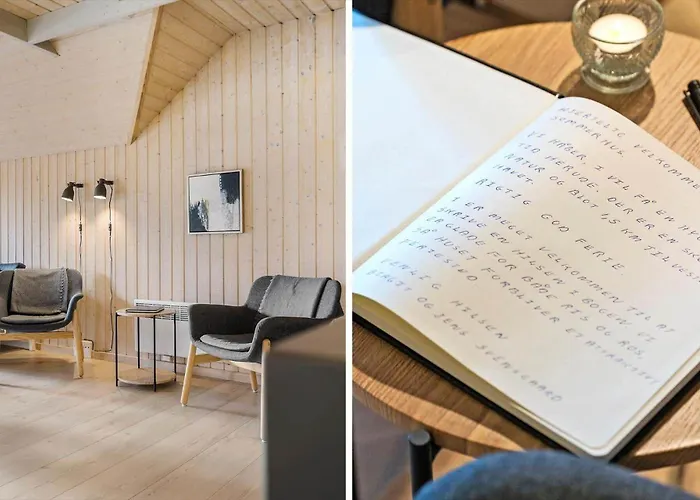 HJERTELIG VELKOMM
SOMMERHUS.
VI HÅBER, I VIL FÅ EN HY
TID HERUDE. DER ER EN SKØ
NATUR OG BLOT 1,5 KM TIL DET
HAVET.
RIGTIG GOD FERIE.
I ER MEGET VELKOMMEN TIL AT
SKRIVE EN HILSEN I BOGEN. VI
ER GLADE FOR BÅDE RIS OG ROS,
SÅ HUSET FORBLIVER ET ATTRAKTIVT
FERIESTED
VENLIG HILSEN
BIRGIT OG JENS SVENDGAARD